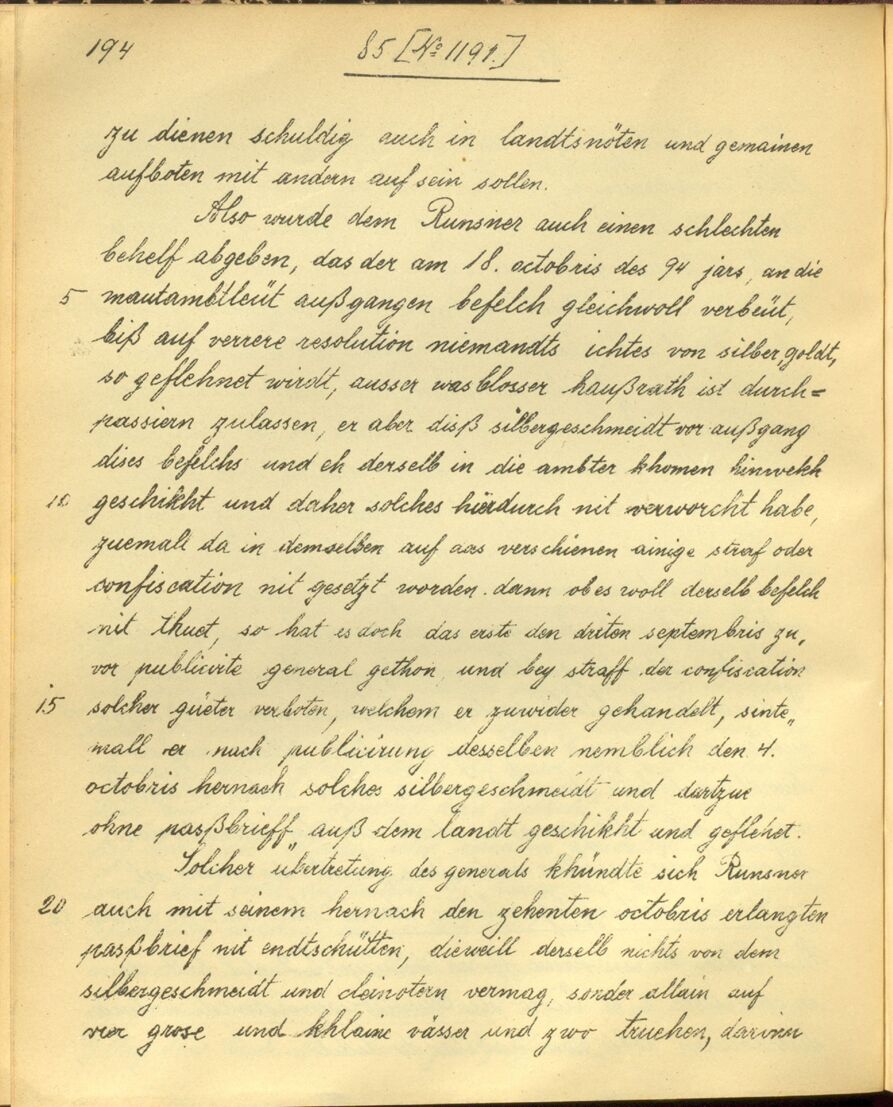 194 85 [No 1191.]
zu dienen schuldig auch in landtsnöten und gemainen
aufboten mit andern auf sein sollen.
Also wurde dem Runsner auch einen schlechten
behelf abgeben, das der am 18. octobris des 94 jars, an die
5 mautambtleüt außgangen befelch gleichwoll verbeüt,
biß auf verrere resolution niemandts ichtes von silber, goldt,
so geflehnet wirdt, ausser was blosser haußrath ist durch=
passiern zulassen, er aber disß silbergeschmeidt vor außgang
dises befelchs und eh derselb in die ambter khomen hinwekh
10 geschikht und daher solches hierdurch nit verworcht habe,
zuemall da in demselben auf das verschienen ainige straf oder
confiscation nit gesetzt worden. dann ob es woll derselb befelch
nit thuet, so hat es doch das erste den driten septembris zu„
vor publicirte general gethon, und bey straff der confiscation
15 solcher güeter verboten, welchem er zuwider gehandelt, sinte„
mall er nach publicirung desselben nemblich den 4.
octobris hernach solches silbergeschmeidt und dartzue
ohne pasßbrieff auß dem landt geschikht und geflehet.
Solcher übertretung des generals khündte sich Runsner
20 auch mit seinem hernach den zehenten octobris erlangten
pasßbrief nit endtschütten, dieweill derselb nichts von dem
silbergeschmeidt und cleinotern vermag, sonder allain auf
vier grose und khlaine vässer und zwo truchen, darinn